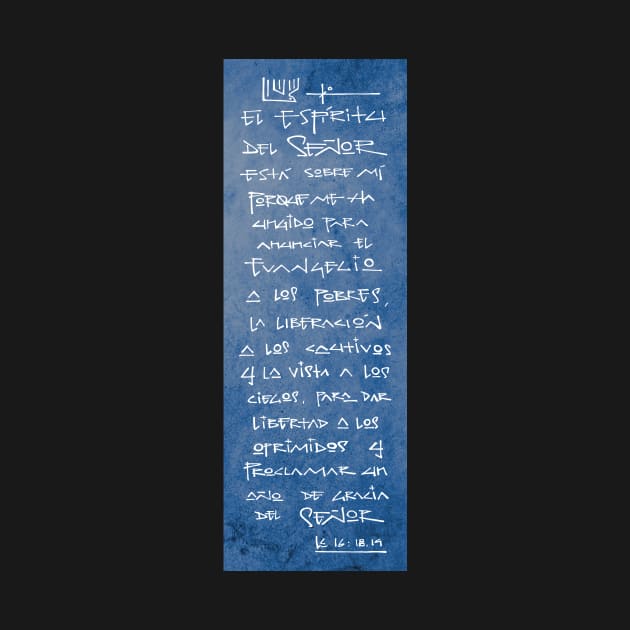 EL ESPÍRITU
DEL SEÑOR
ESTÁ SOBRE MÍ
PORQUE ME HA
UNGIDO PARA
ANUNCIAR EL
EVANGELIO
A LOS POBRES,
LA LIBERACIÓN
A LOS CAUTIVOS
Y LA VISTA A LOS
CIEGOS, PARA DAR
LIBERTAD A LOS
OPRIMIDOS Y
PROCLAMAR UN
AÑO DE GRACIA
DEL SEÑOR
LC 16:18,19